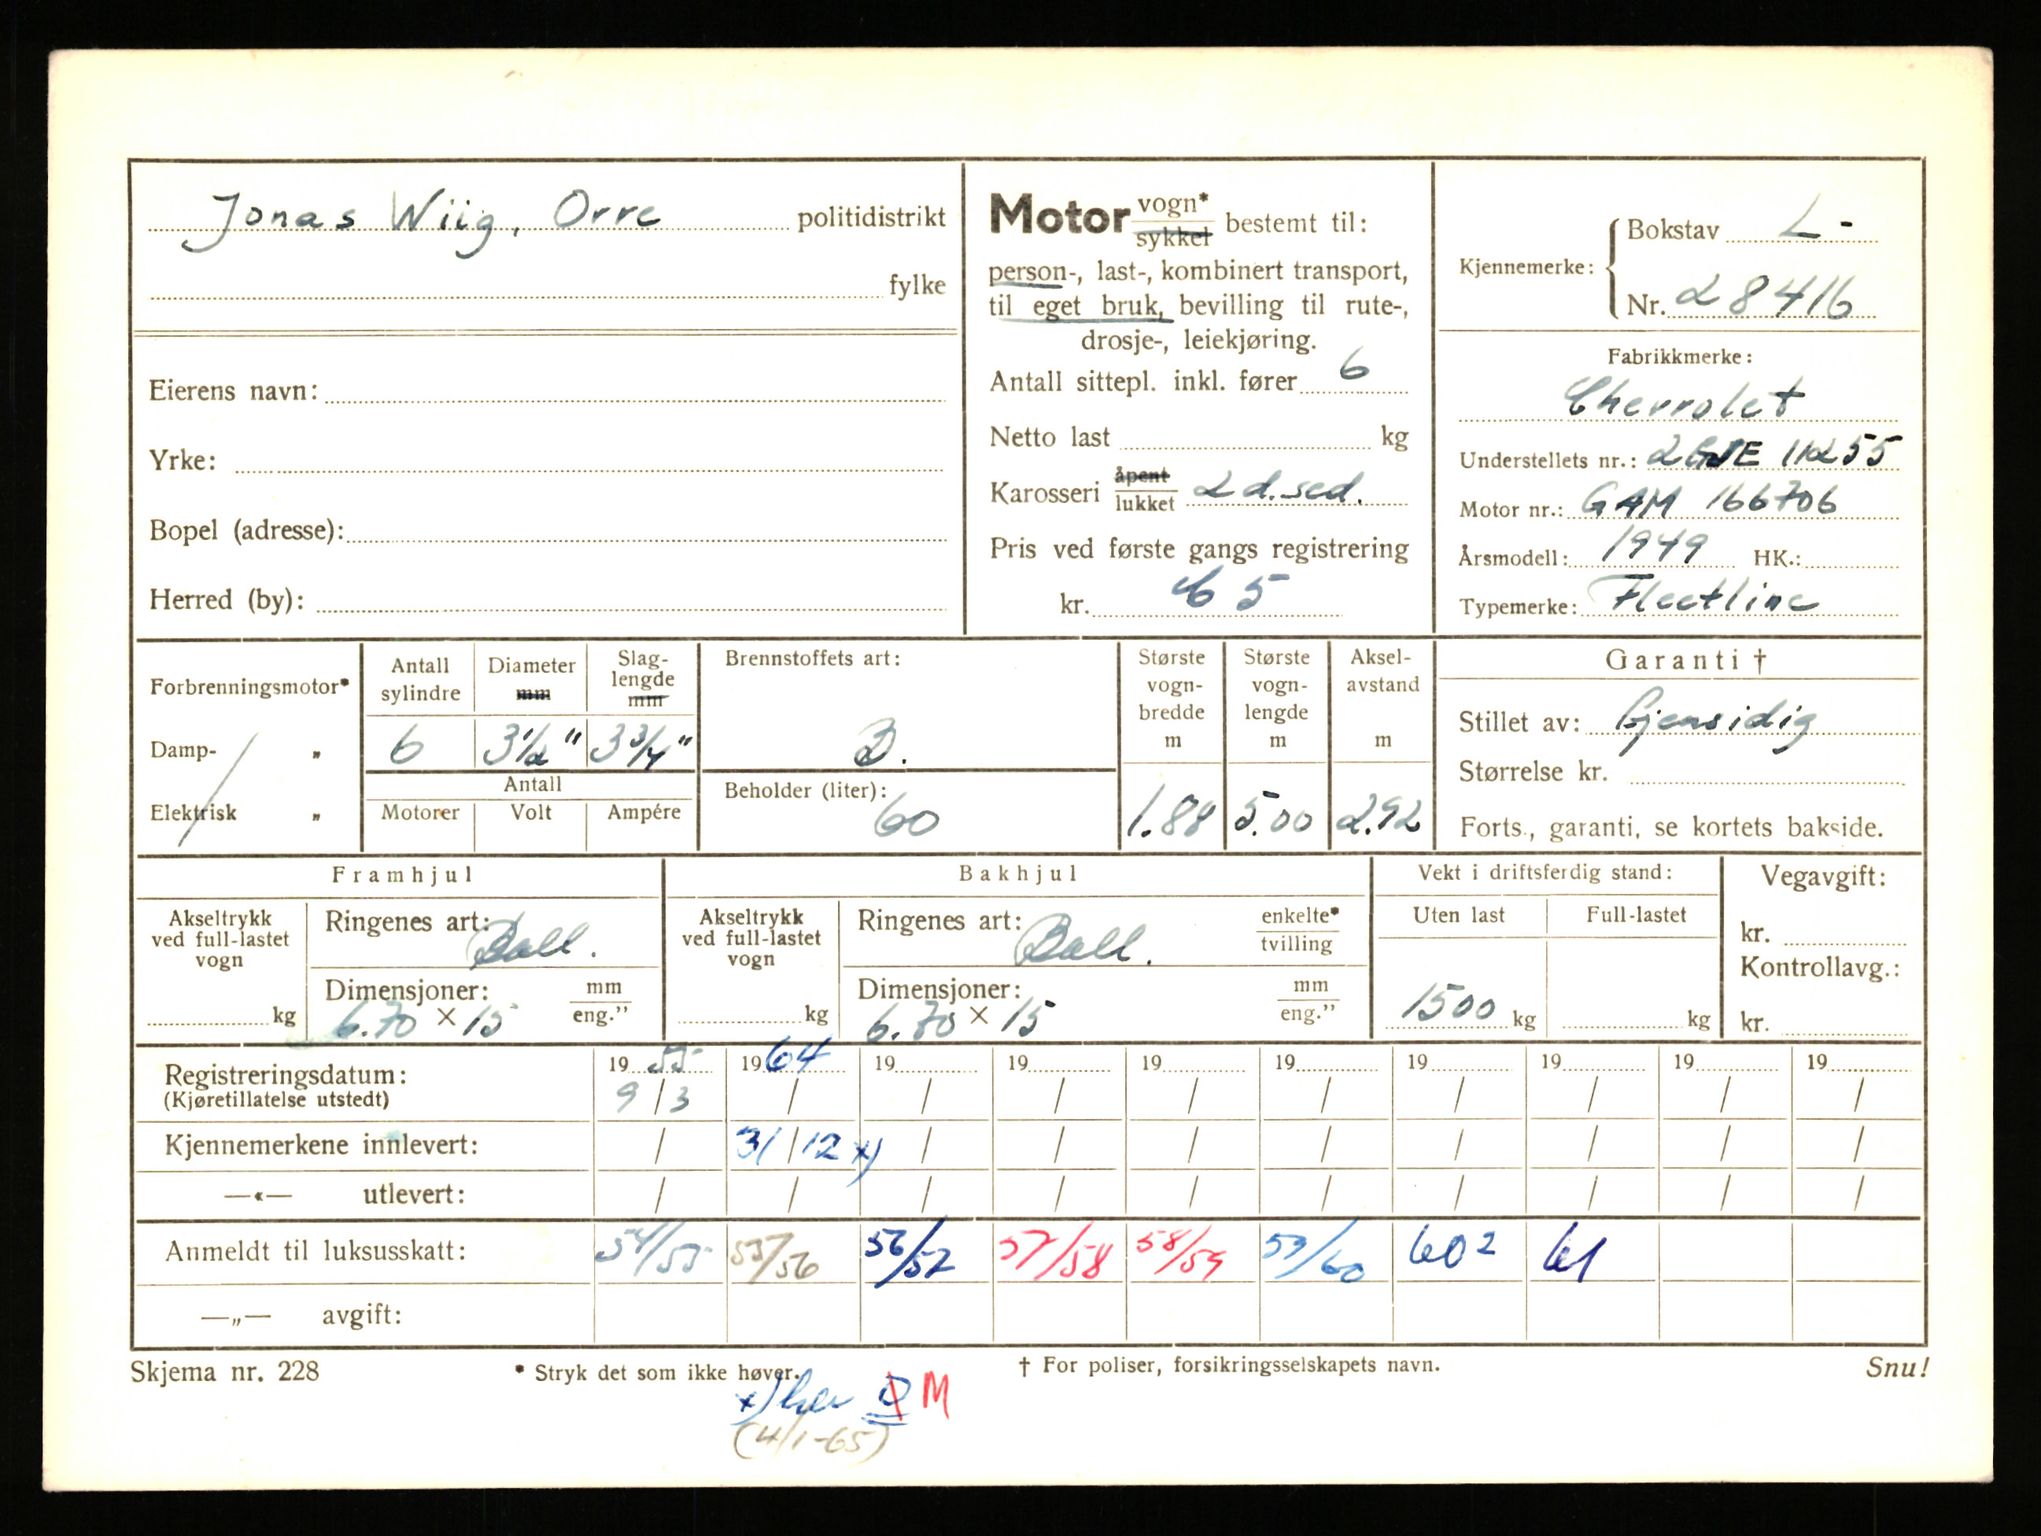 Jonas Wiig, Orre politidistrikt
fylke
Eierens navn:
Yrke:
Bopel (adresse):
Herred (by):
Motor vogn* / sykkel bestemt til:
person-, last-, kombinert transport,
til eget bruk, bevilling til rute-,
drosje-, leiekjøring.
Antall sittepl. inkl. fører 6
Netto last kg
Karosseri åpent / lukket 2 d. sed.
Pris ved første gangs registrering
kr. 5
Kjennemerke: { Bokstav L-
Nr. 28416
Fabrikkmerke:
Chevrolet
Understellets nr.: 2GJE 11255
Motor nr.: GAM 166706
Årsmodell: 1949 HK.:
Typemerke: Fleetline
Forbrenningsmotor*
Damp- „
Elektrisk „
Antall sylindre
6
Diameter mm
3 1/2 "
Slaglengde mm
3 3/4 "
Antall
Motorer Volt Ampére
Brennstoffets art:
B.
Beholder (liter):
60
Største vogn-bredde m
1.88
Største vogn-lengde m
5.00
Aksel-avstand m
2.92
Garanti †
Stillet av: Gjensidig
Størrelse kr.
Forts., garanti, se kortets bakside.
Framhjul
Akseltrykk ved full-lastet vogn
kg
Ringenes art: Ball.
Dimensjoner: mm / eng."
6.70 × 15
Bakhjul
Akseltrykk ved full-lastet vogn
kg
Ringenes art: Ball. enkelte* / tvilling
Dimensjoner: mm / eng."
6.70 × 15
Vekt i driftsferdig stand:
Uten last Full-lastet
1500 kg kg
Vegavgift:
kr.
Kontrollavg.:
kr.
Registreringsdatum: 1955 1964 19 19 19 19 19 19 19 19
(Kjøretillatelse utstedt) 9/3 / / / / / / / / /
Kjennemerkene innlevert: / 31/12 x) / / / / / / / /
—«— utlevert: / / / / / / / / / /
Anmeldt til luksusskatt: 54/55 55/56 56/57 57/58 58/59 59/60 60 2 61
—„— avgift:
Skjema nr. 228 * Stryk det som ikke høver. † For poliser, forsikringsselskapets navn. Snu!
x) her M
(4/1-65)